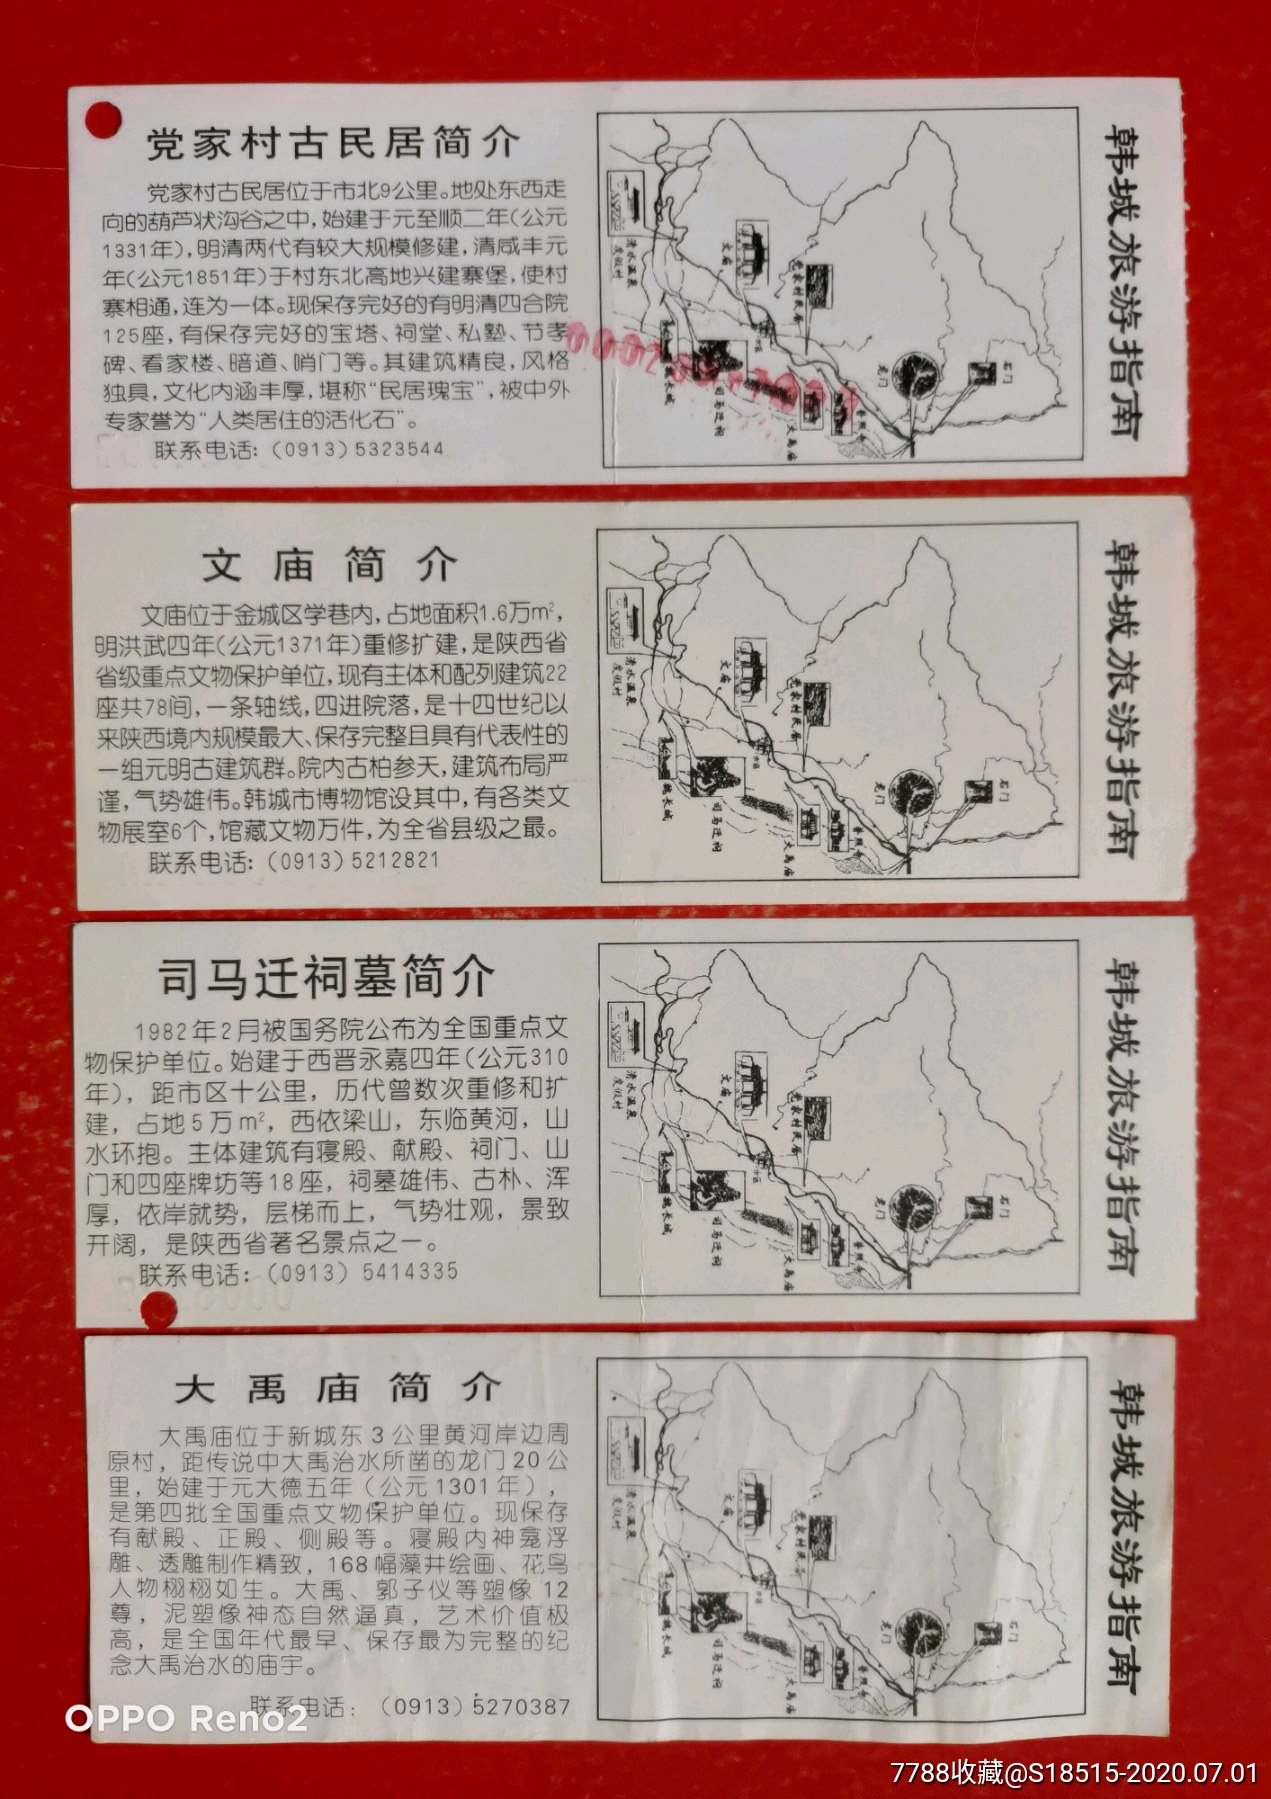 党家村古民居简介
党家村古民居位于市北9公里。地处东西走
向的葫芦状沟谷之中，始建于元至顺二年（公元
1331年），明清两代有较大规模修建，清咸丰元
年（公元1851年）于村东北高地兴建寨堡，使村
寨相通，连为一体。现保存完好的有明清四合院
125座，有保存完好的宝塔、祠堂、私塾、节孝
碑、看家楼、暗道、哨门等。其建筑精良，风格
独具，文化内涵丰厚，堪称“民居瑰宝”，被中外
专家誉为“人类居住的活化石”。
联系电话：（0913）5323544
清水温泉
度假村
文庙
党家村民居
市区
魏长城
司马迁祠
大禹庙
普照寺
龙门
石门
韩城旅游指南
文庙简介
文庙位于金城区学巷内，占地面积1.6万m²，
明洪武四年（公元1371年）重修扩建，是陕西省
省级重点文物保护单位，现有主体和配列建筑22
座共78间，一条轴线，四进院落，是十四世纪以
来陕西境内规模最大、保存完整且具有代表性的
一组元明古建筑群。院内古柏参天，建筑布局严
谨，气势雄伟。韩城市博物馆设其中，有各类文
物展室6个，馆藏文物万件，为全省县级之最。
联系电话：（0913）5212821
清水温泉
度假村
文庙
党家村民居
市区
魏长城
司马迁祠
大禹庙
普照寺
龙门
石门
韩城旅游指南
司马迁祠墓简介
1982年2月被国务院公布为全国重点文
物保护单位。始建于西晋永嘉四年（公元310
年），距市区十公里，历代曾数次重修和扩
建，占地5万m²，西依梁山，东临黄河，山
水环抱。主体建筑有寝殿、献殿、祠门、山
门和四座牌坊等18座，祠墓雄伟、古朴、浑
厚，依岸就势，层梯而上，气势壮观，景致
开阔，是陕西省著名景点之一。
联系电话：（0913）5414335
清水温泉
度假村
文庙
党家村民居
市区
魏长城
司马迁祠
大禹庙
普照寺
龙门
石门
韩城旅游指南
大禹庙简介
大禹庙位于新城东3公里黄河岸边周
原村，距传说中大禹治水所凿的龙门20公
里，始建于元大德五年（公元1301年），
是第四批全国重点文物保护单位。现保存
有献殿、正殿、侧殿等。寝殿内神龛浮
雕、透雕制作精致，168幅藻井绘画、花鸟
人物栩栩如生。大禹、郭子仪等塑像12
尊，泥塑像神态自然逼真，艺术价值极
高，是全国年代最早、保存最为完整的纪
念大禹治水的庙宇。
联系电话：（0913）5270387
清水温泉
度假村
文庙
党家村民居
市区
魏长城
司马迁祠
大禹庙
普照寺
龙门
石门
韩城旅游指南
OPPO Reno2
7788收藏@S18515-2020.07.01